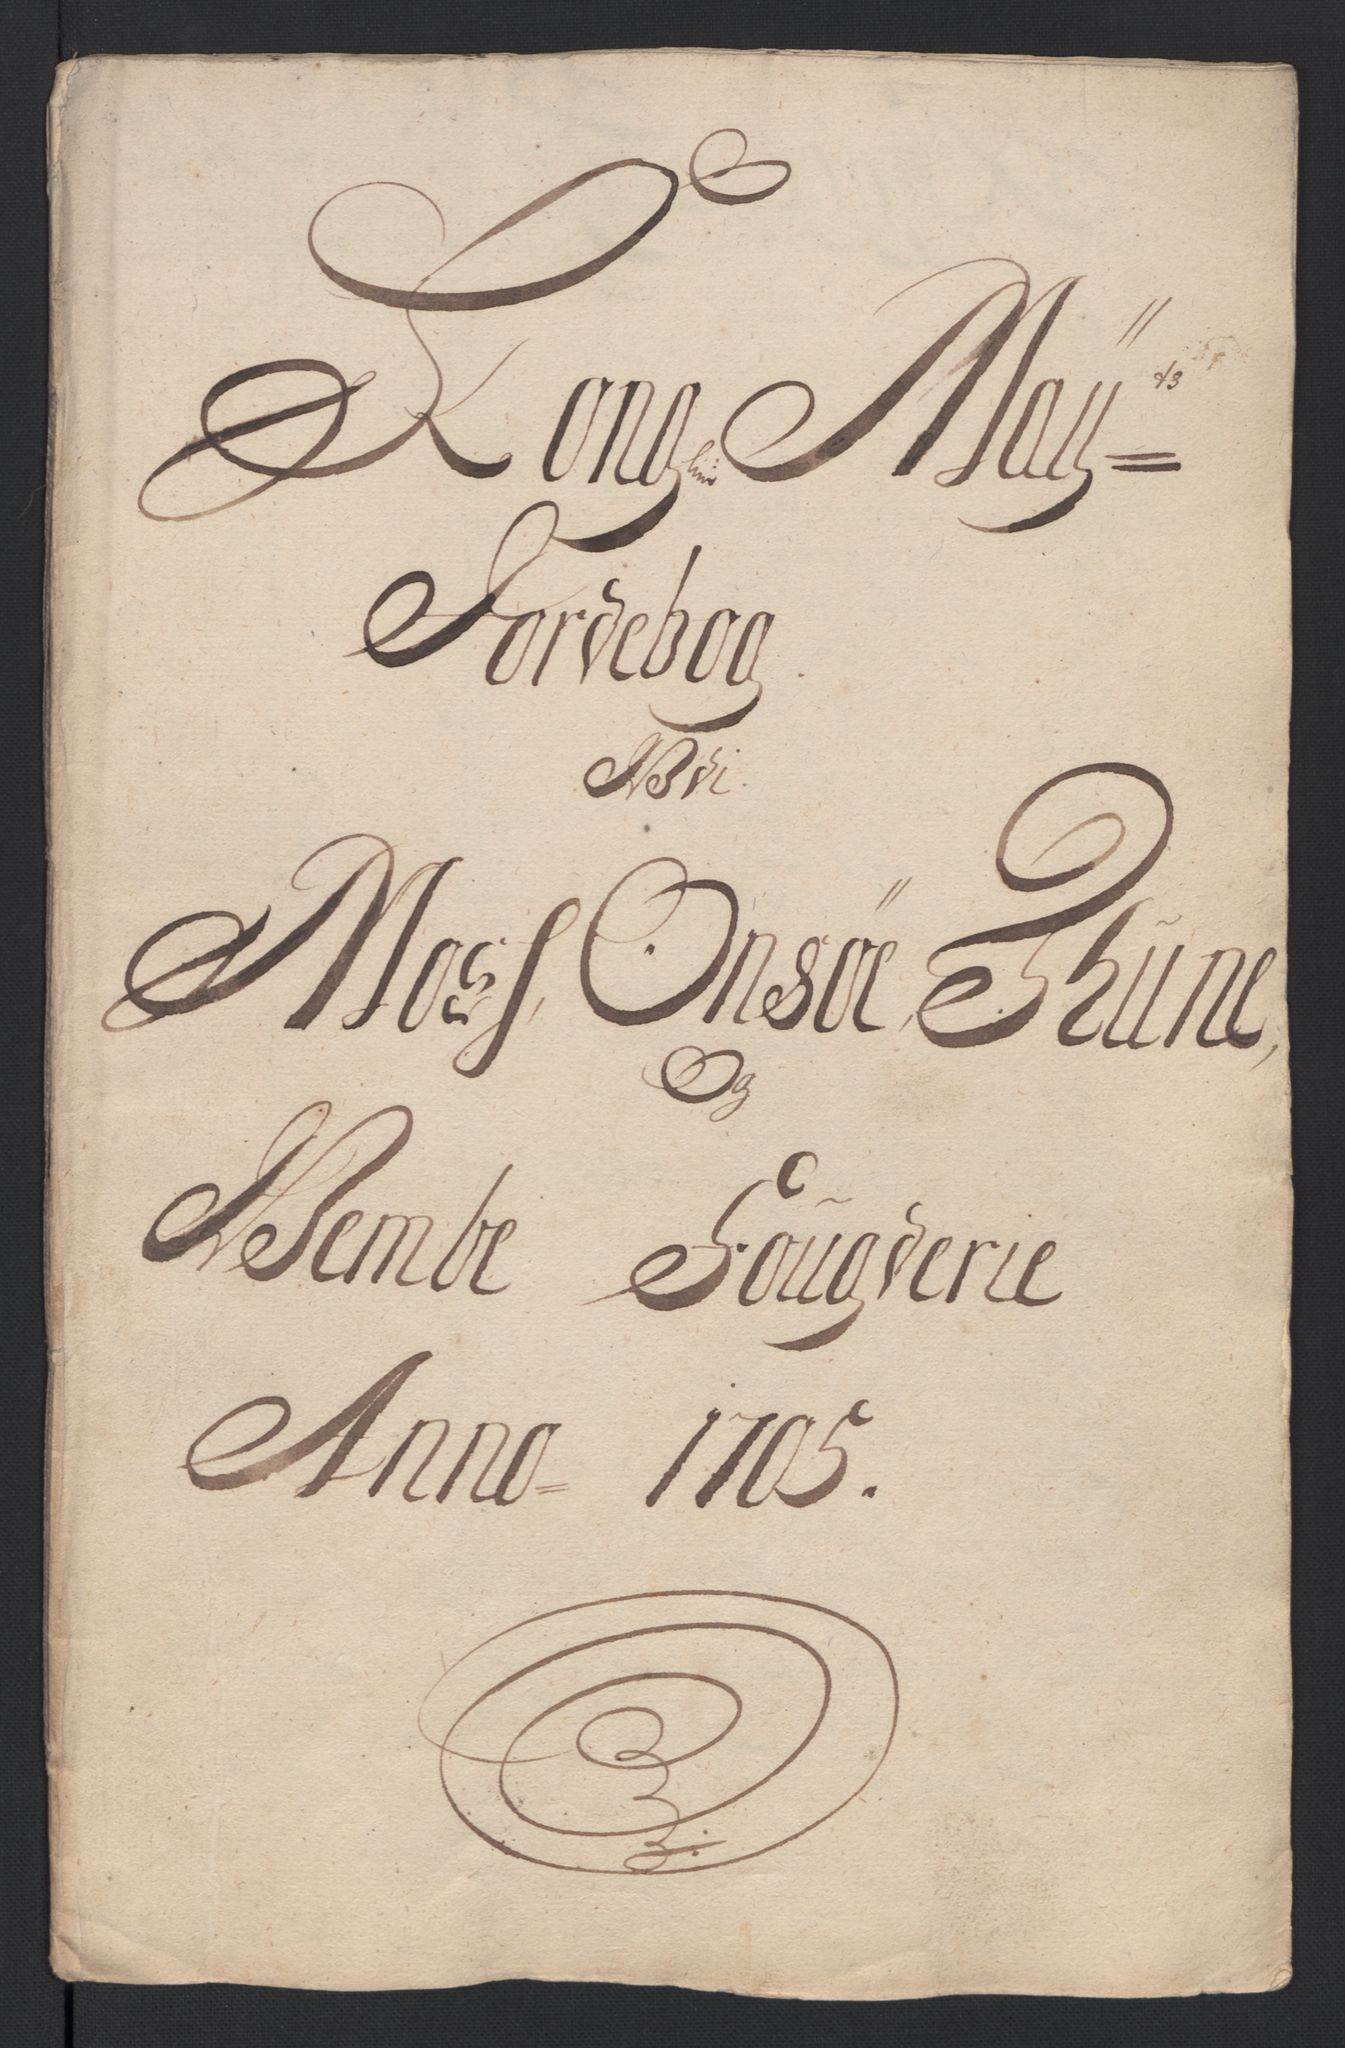 Kong: May:ts
Jordebog
Udi
Moss, Onsöe, Thune,
Og
Wembe Fougderie
Anno 1705.